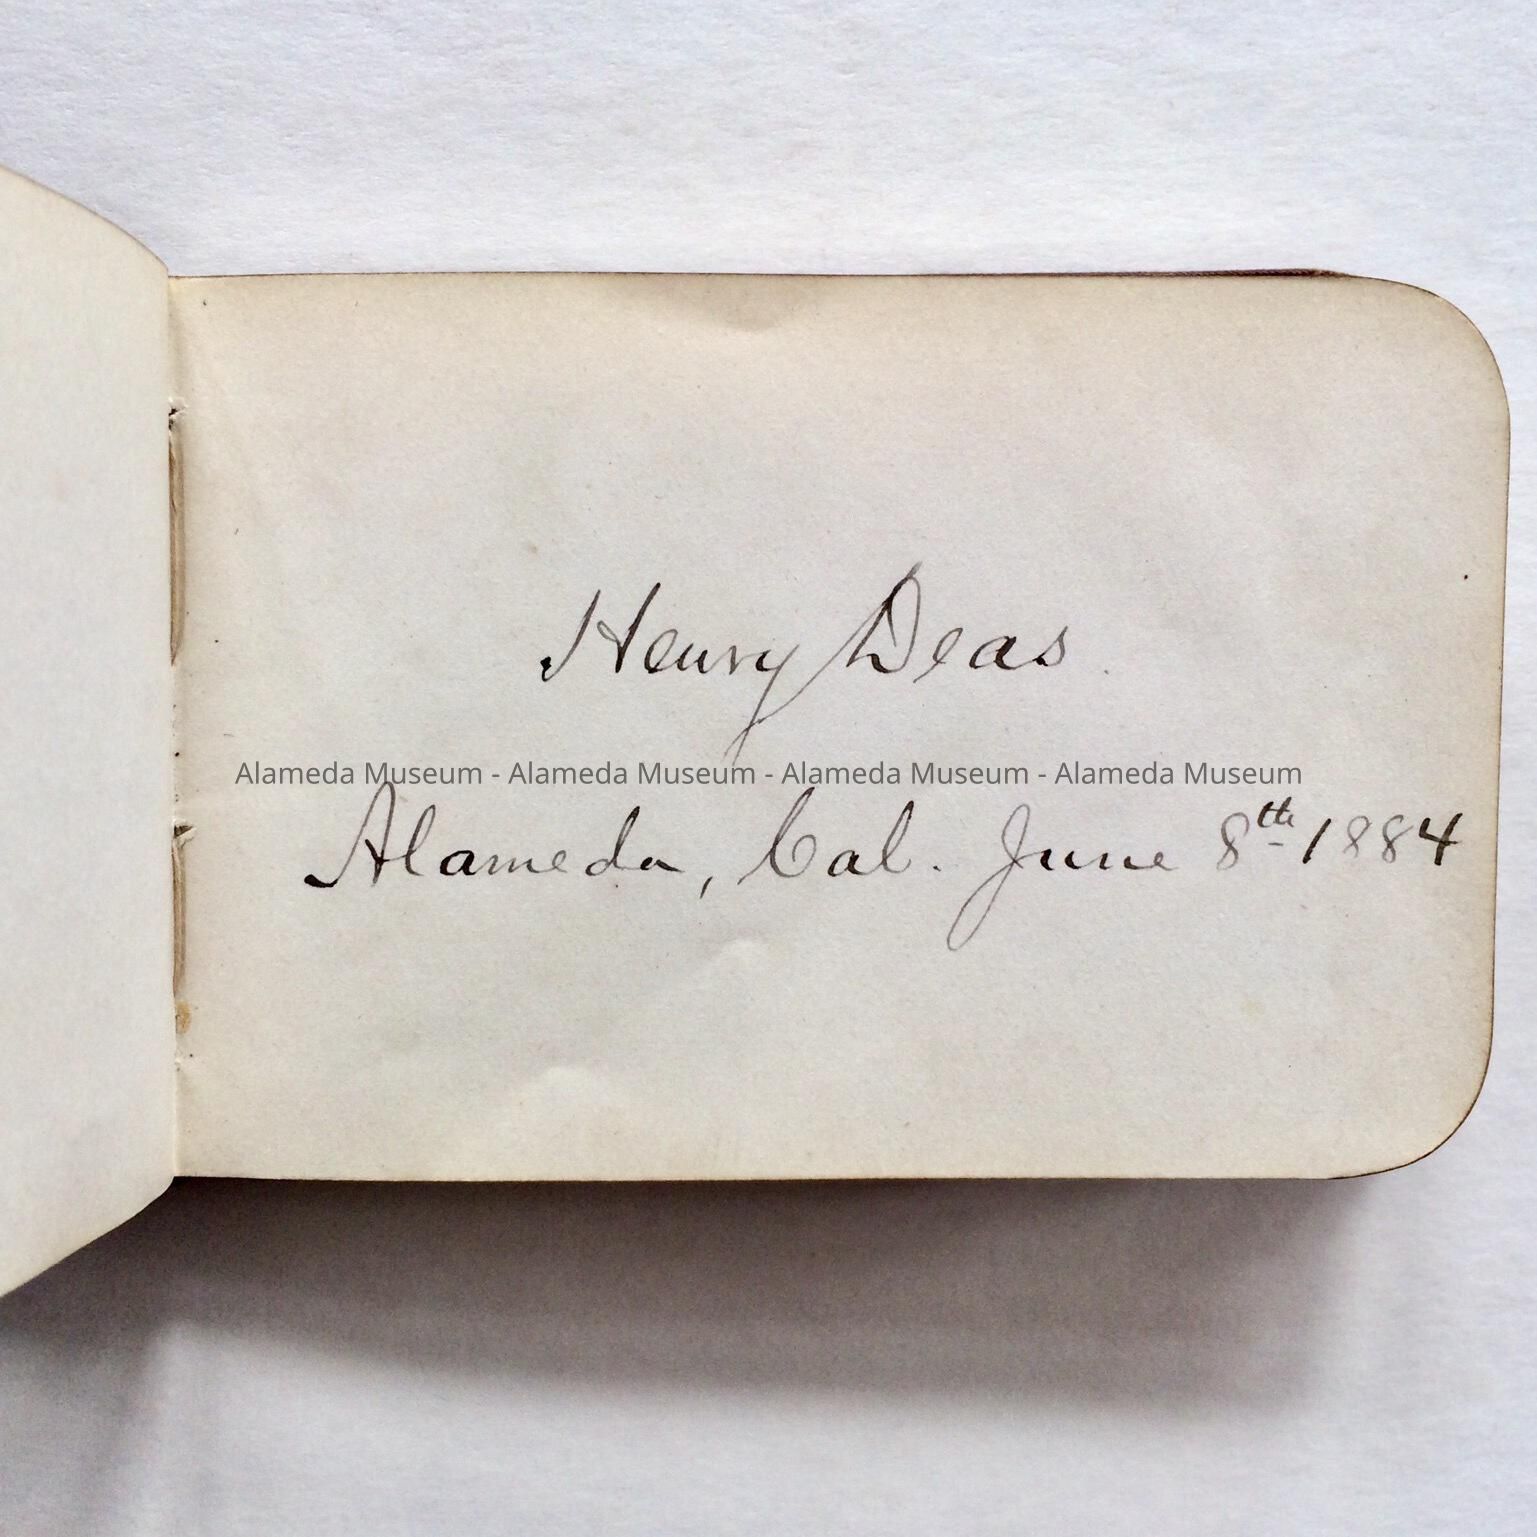 Henry Deas.
Alameda Museum - Alameda Museum - Alameda Museum - Alameda Museum
Alameda, Cal. June 8th 1884